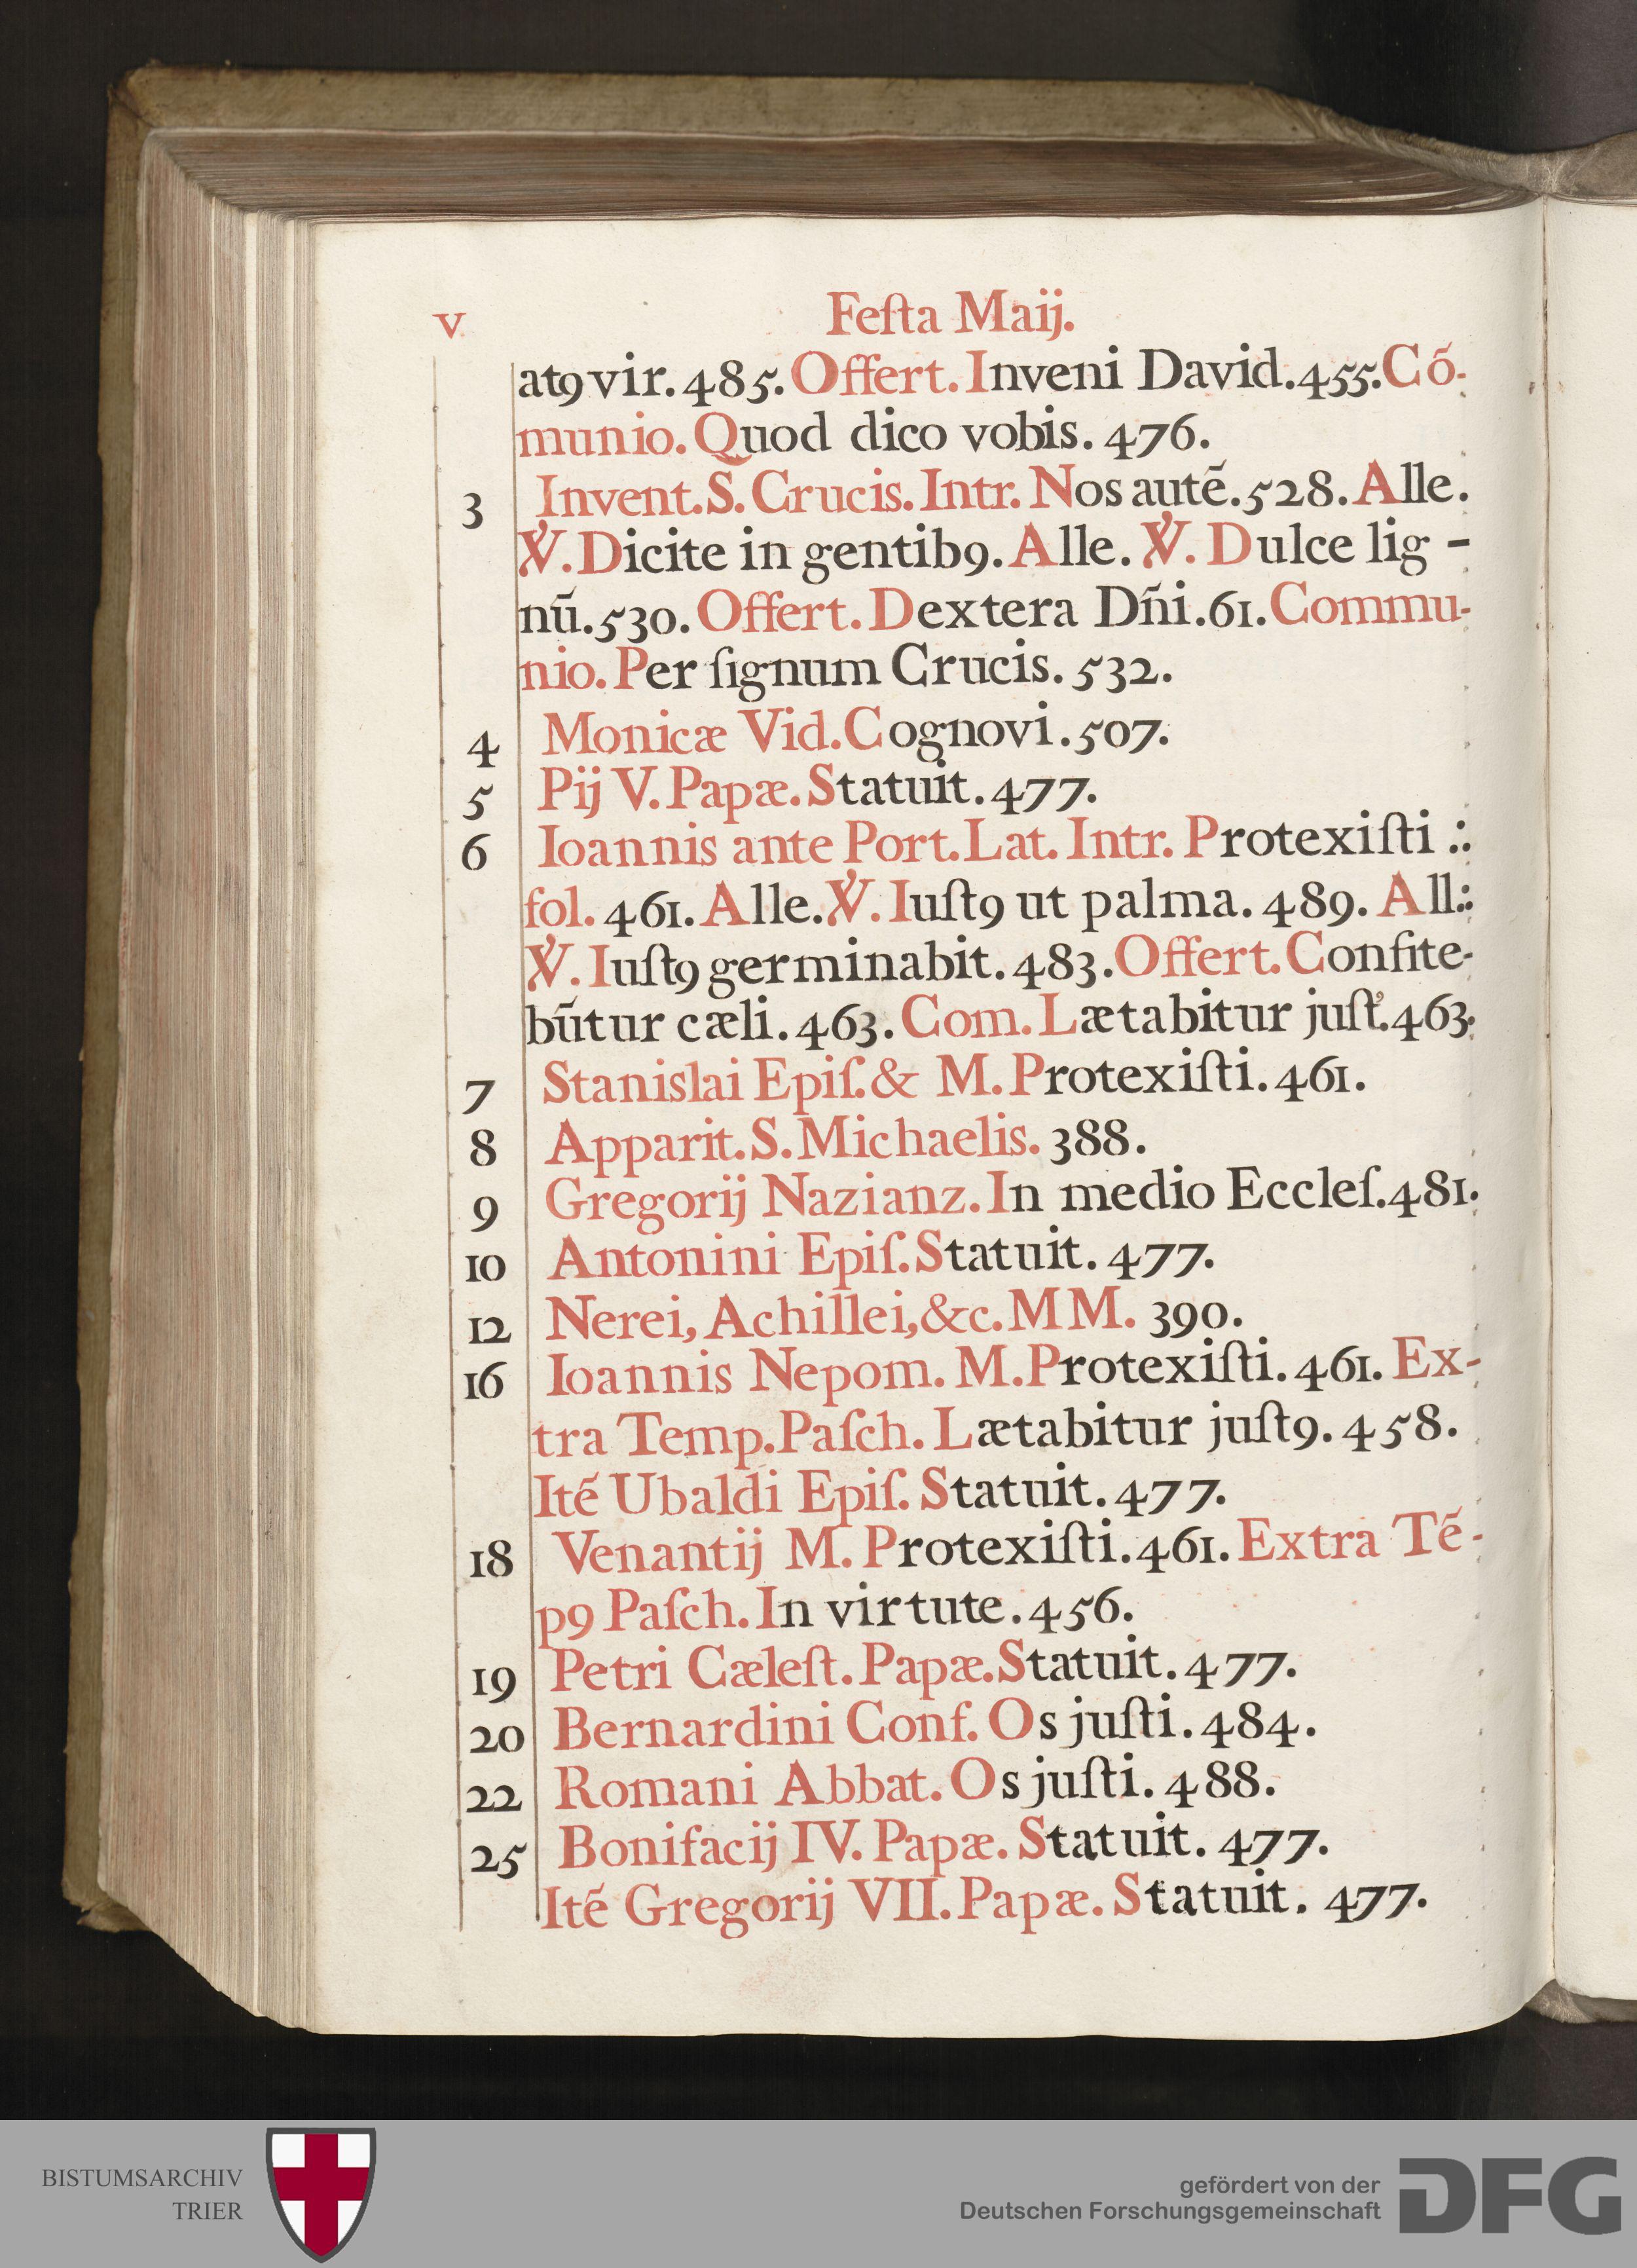 v
Feſta Maij.
at9 vir. 485. Offert. Inveni David. 455. Cō-
munio. Quod dico vobis. 476.
3 Invent. S. Crucis. Intr. Nos autē. 528. Alle.
℣. Dicite in gentib9. Alle. ℣. Dulce lig-
nū. 530. Offert. Dextera Dn̄i. 61. Commu-
nio. Per ſignum Crucis. 532.
4 Monicæ Vid. Cognovi. 507.
5 Pij V. Papæ. Statuit. 477.
6 Ioannis ante Port. Lat. Intr. Protexiſti .:
fol. 461. Alle. ℣. Iuſt9 ut palma. 489. All.:
℣. Iuſt9 germinabit. 483. Offert. Confite-
būtur cæli. 463. Com. Lætabitur juſt'. 463.
7 Stanislai Epiſ. & M. Protexiſti. 461.
8 Apparit. S. Michaelis. 388.
9 Gregorij Nazianz. In medio Eccleſ. 481.
10 Antonini Epiſ. Statuit. 477.
12 Nerei, Achillei, &c. MM. 390.
16 Ioannis Nepom. M. Protexiſti. 461. Ex-
tra Temp. Paſch. Lætabitur juſt9. 458.
Itē Ubaldi Epiſ. Statuit. 477.
18 Venantij M. Protexiſti. 461. Extra Tē-
p9 Paſch. In virtute. 456.
19 Petri Cæleſt. Papæ. Statuit. 477.
20 Bernardini Conf. Os juſti. 484.
22 Romani Abbat. Os juſti. 488.
25 Bonifacij IV. Papæ. Statuit. 477.
Itē Gregorij VII. Papæ. Statuit. 477.
BISTUMSARCHIV
TRIER
gefördert von der
Deutschen Forschungsgemeinschaft
DFG